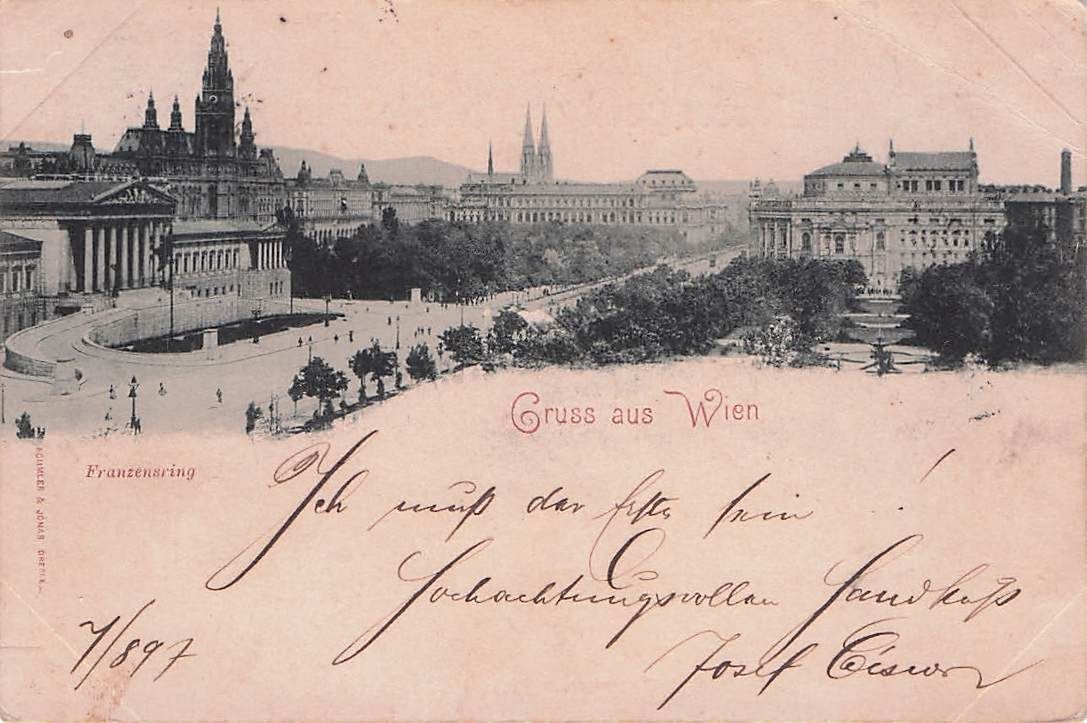 Gruss aus Wien
Franzensring
RÖMMLER & JONAS DRESDEN
Ich muß der Erste sein!
Hochachtungsvollen Handkuß
7/897 Josef